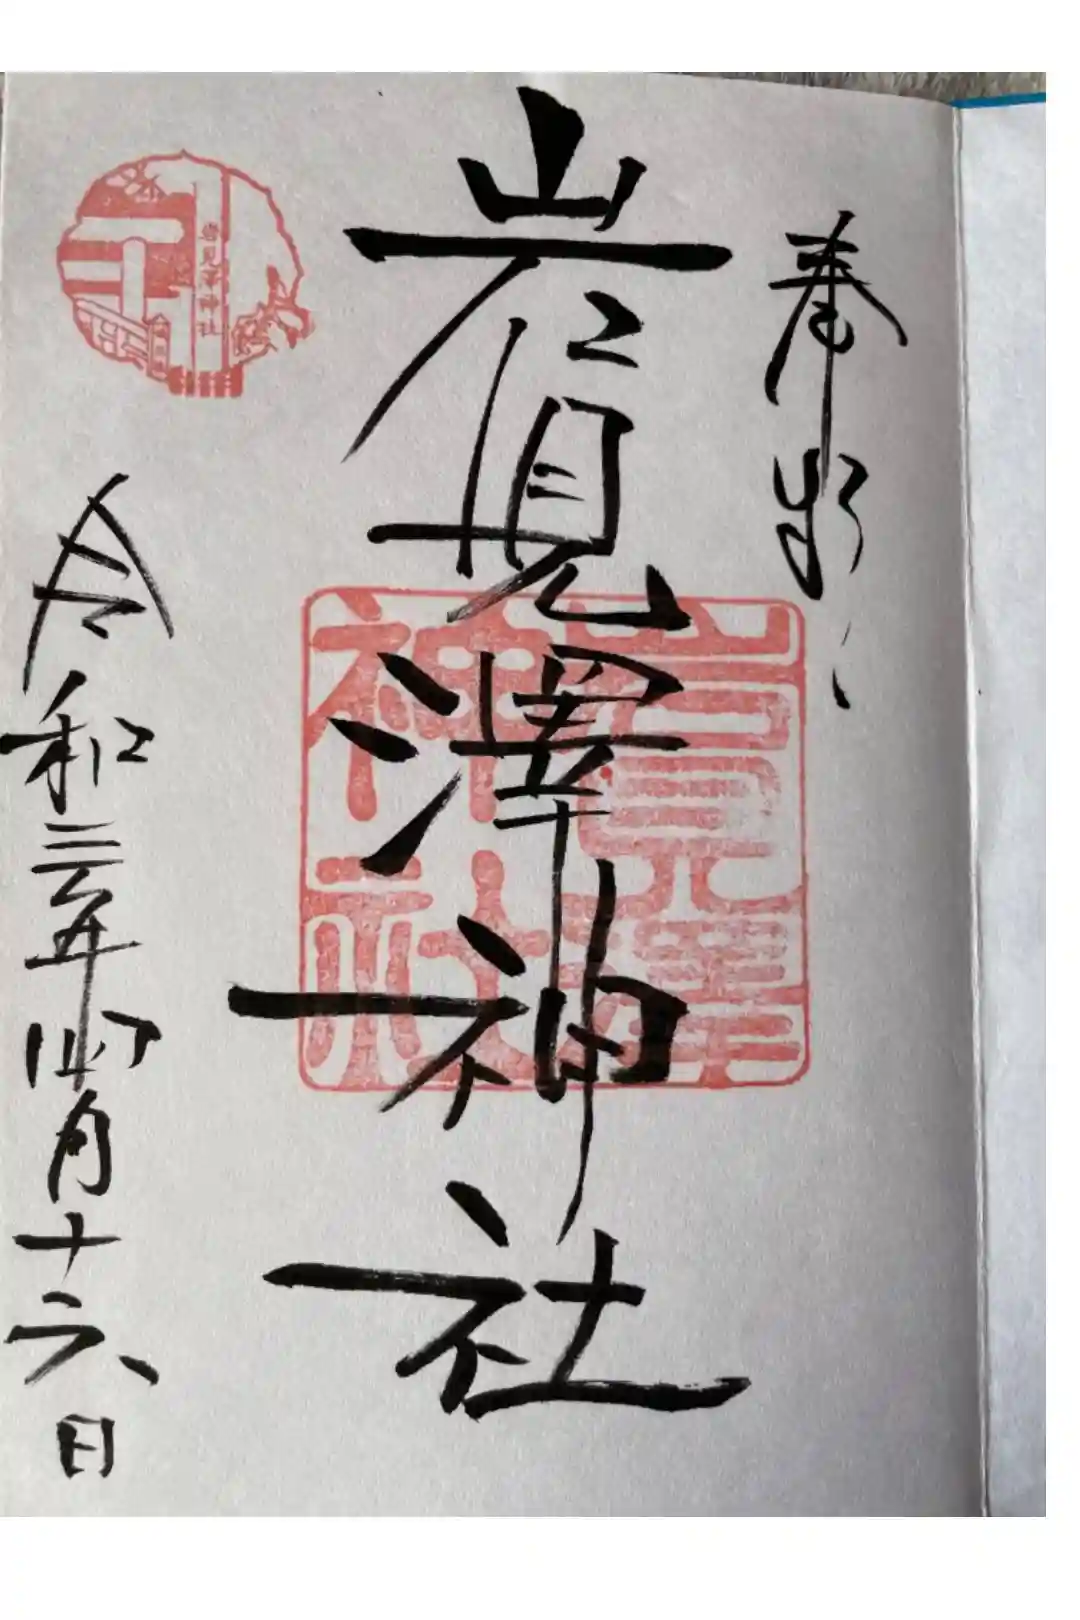 奉拝
岩見澤神社
岩見澤神社
岩見澤神社
令和三年四月十六日